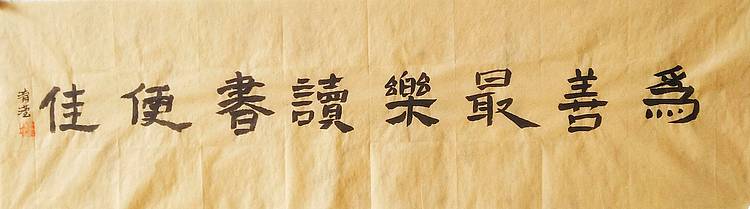 爲善最樂讀書便佳